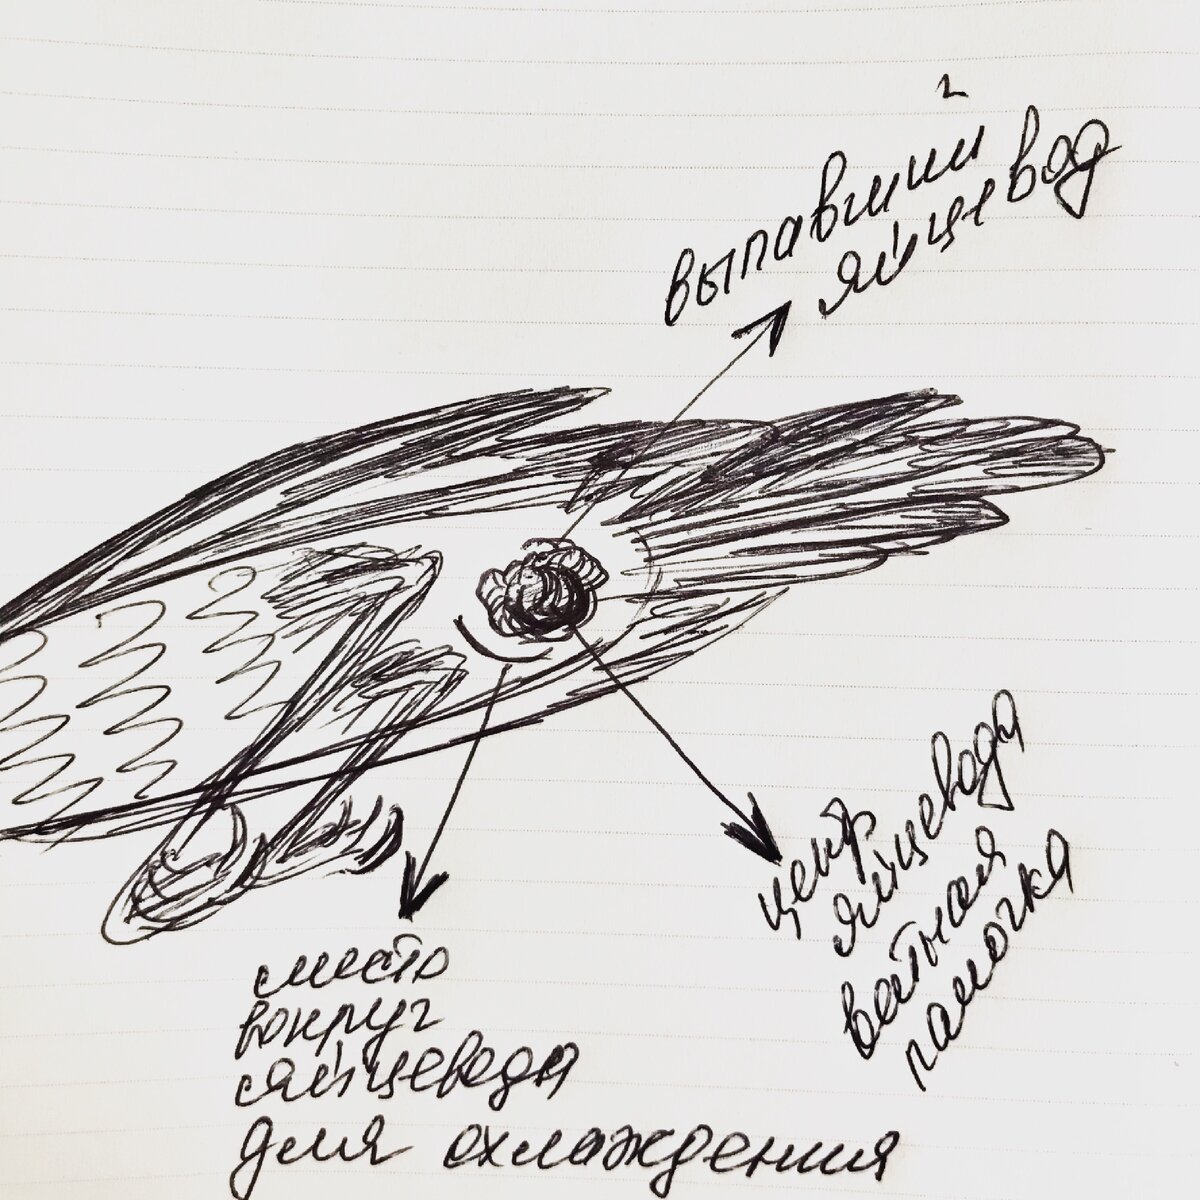 выпавший
яйцевод
центр
яйцевода
ватная
палочка
место
вокруг
яйцевода
для охлаждения